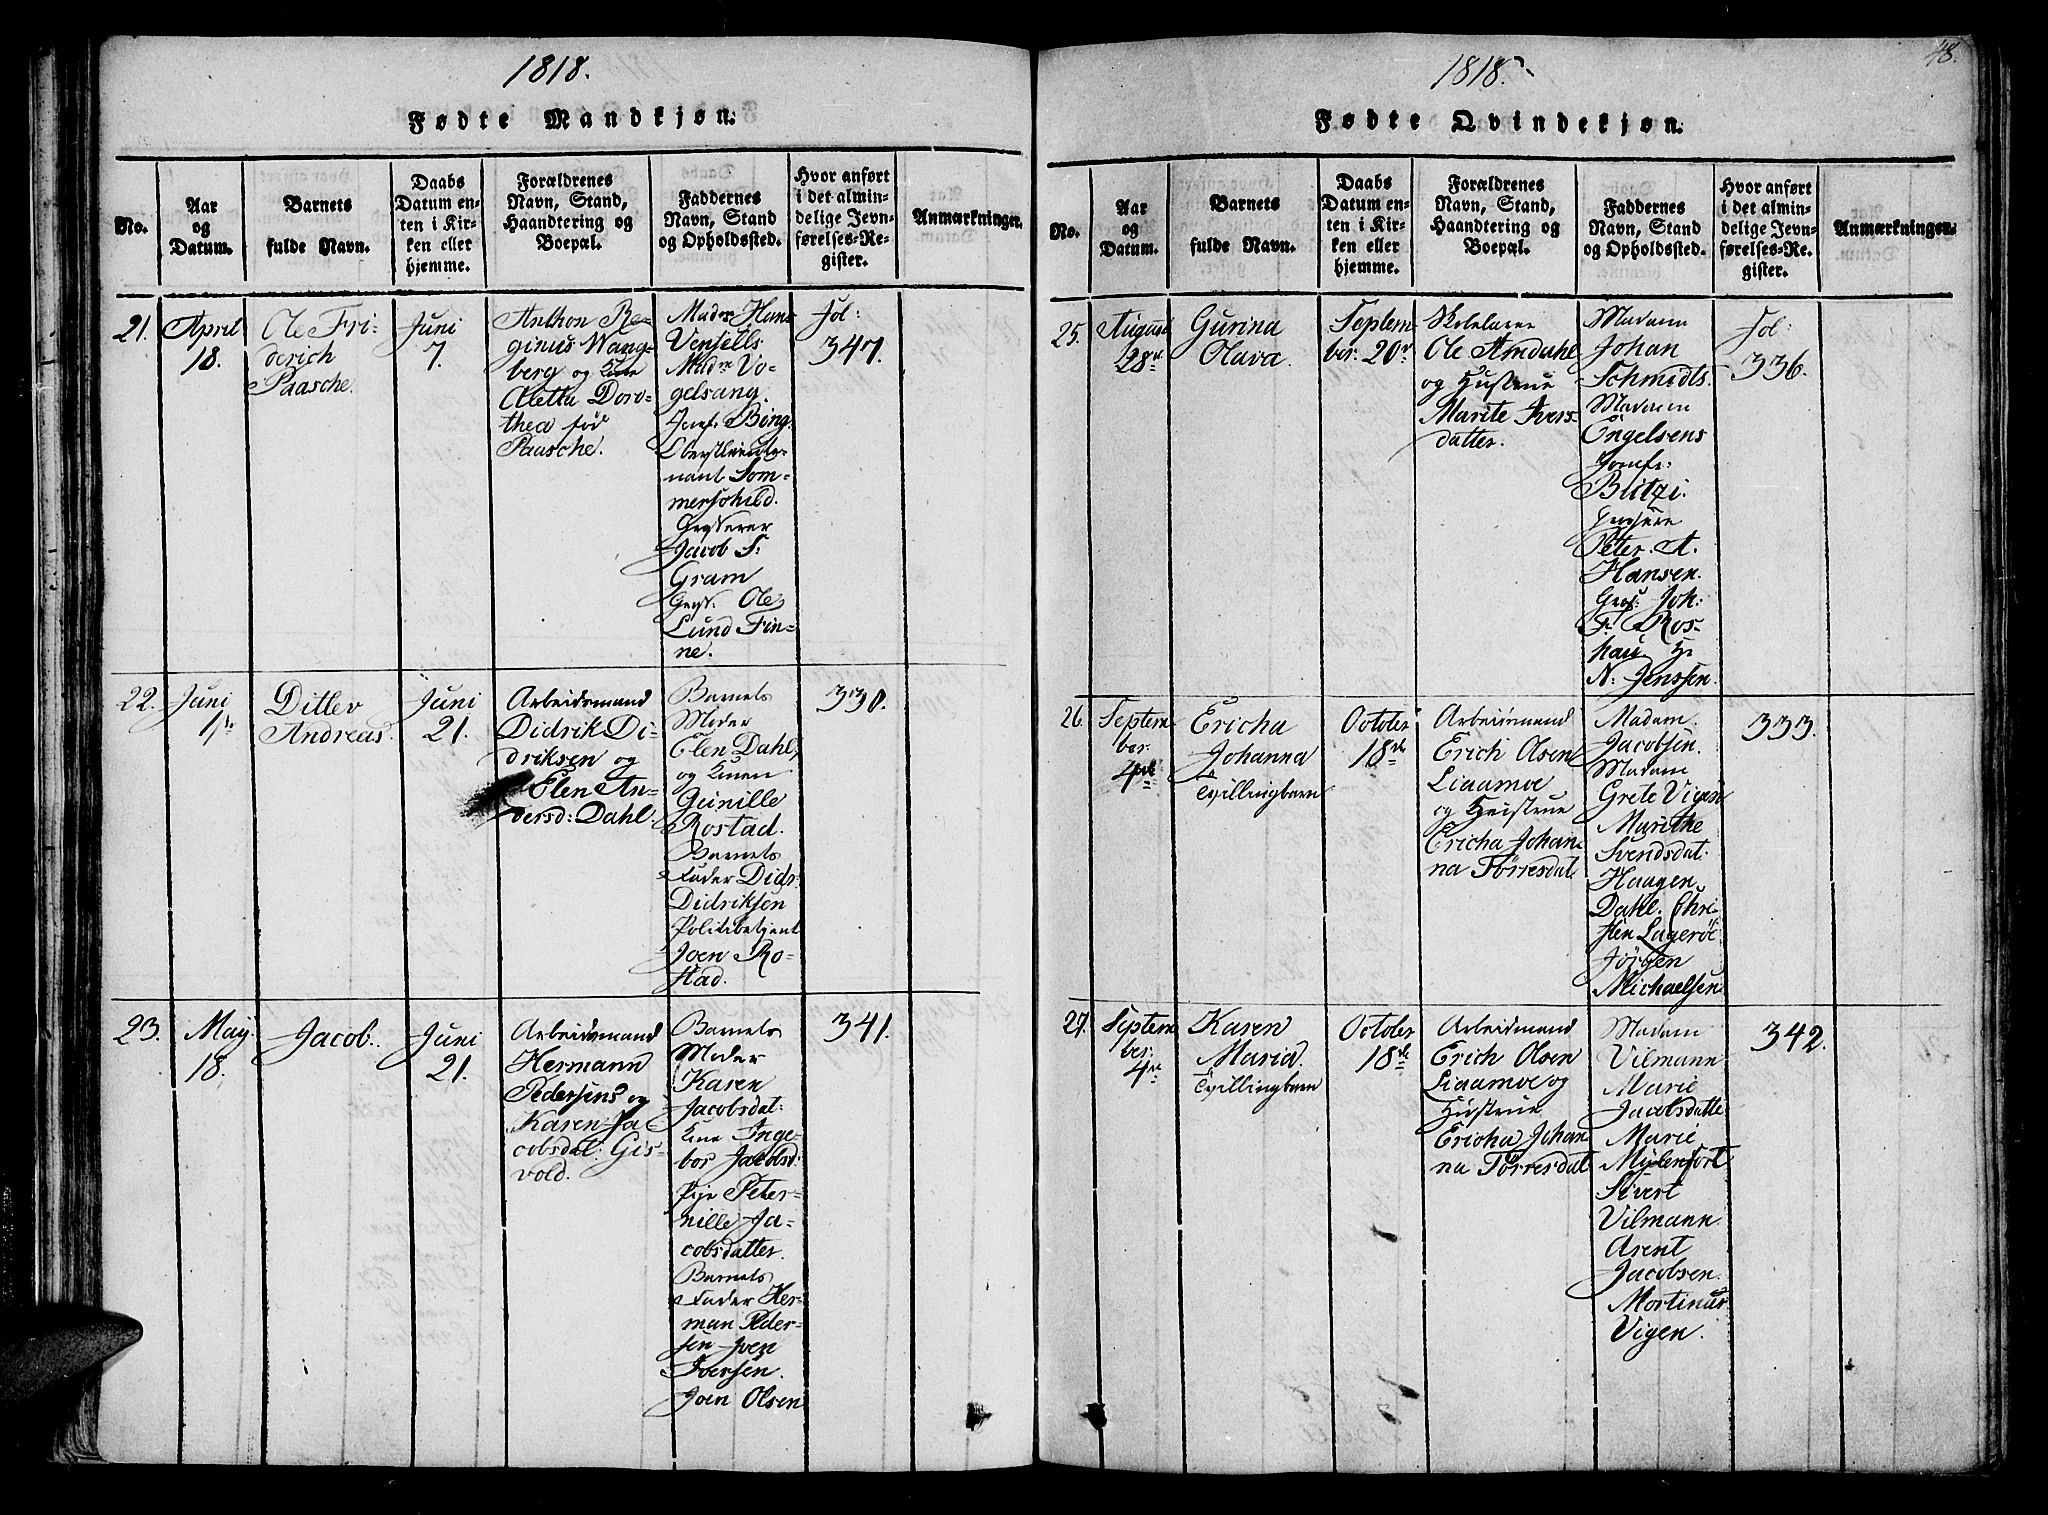 1818.
Fødte Mandkjøn.
No.
Aar
og
Datum.
Barnets
fulde Navn.
Daabs
Datum en-
ten i Kir-
ken eller
hjemme.
Forældrenes
Navn, Stand,
Haandtering og
Boepæl.
Faddernes
Navn, Stand
og Opholdssted.
Hvor anført
i det almin-
delige Jevn-
førelses-Re-
gister.
Anmærkninger.
21.
April
18.
Ole Fri-
derich
Paasche.
Juni
7.
Anthon Re-
ginus Wang-
berg og Kone
Aletta Doro-
thea fød
Paasche.
Madme Hans
Vensells
Madme Vo-
gelsang.
Jomf. Bing.
Oberstlieute-
nant Som-
merschild.
Jacob S:
Gram
Ole
Lund Fin-
ne.
Fol:
347.
22.
Juni
1ste
Ditlev
Andreas.
Juni
21.
Arbeidsmand
Didrik Di-
driksen og
Elen An-
dersd: Dahl.
Barnets
Moder
Elen Dahl,
og Konen
Gunille
Rostad.
Barnets
Fader Didr:
Didriksen
Politibetjent
Joen Ro-
stad.
330.
23.
May
18.
Jacob.
Juni
21.
Arbeidsmand
Hermann
Pedersens og
Karen Ja-
cobsdat: Gis-
vold.
Barnets
Moder
Karen
Jacobsdat:
Kone Inge-
bor Jacobsd:
Pige Peter-
nille Ja-
cobsdatter.
Barnets
Fader Her-
man Peder-
sen Iven
Iversen.
Joen Olsen
341.
48.
1818.
Fødte Qvindekjøn.
No.
Aar
og
Datum.
Barnets
fulde Navn.
Daabs
Datum en-
ten i Kir-
ken eller
hjemme.
Forældrenes
Navn, Stand,
Haandtering og
Boepæl.
Faddernes
Navn, Stand
og Opholdssted.
Hvor anført
i det almin-
delige Jevn-
førelses-Re-
gister.
Anmærkninger.
25.
August
28de
Gurina
Olava.
Septem-
ber. 20de
Skolelærer
Ole Amdahl
og Hustrue
Marite Ivers-
datter.
Madam
Johan
Schmidts.
Madam
Engelsens
Jomfr:
Blitzi.
Peter A.
Hansen.
Joh:
F. Ros-
hau, Hr
N: Jenssen.
Fol:
336.
26.
Septem-
ber.
4de
Ericha
Johanna
Tvillingbarn
October
18de
Arbeidsmand
Erich Olsen
Liaamoe
og Hustrue
Ericha Johan-
na Tørresdat.
Madam
Jacobsen.
Madam
Grete Vigen
Marithe
Svendsdat.
Haagen
Dahl. Chri-
sten Lagerøe
Jørgen
Michaelsen
333.
27.
Septem-
ber.
4de
Karen
Maria.
Tvillingbarn
October
18de
Arbeidsmand
Erich Olsen
Liaamoe og
Hustrue
Ericha Johan-
na Tørresdat
Madam
Vilmann
Marie
Jacobsdatte
Marie
Mylenfort
Sivert
Vilmann
Arent
Jacobsen.
Mortinus
Vigen.
342.